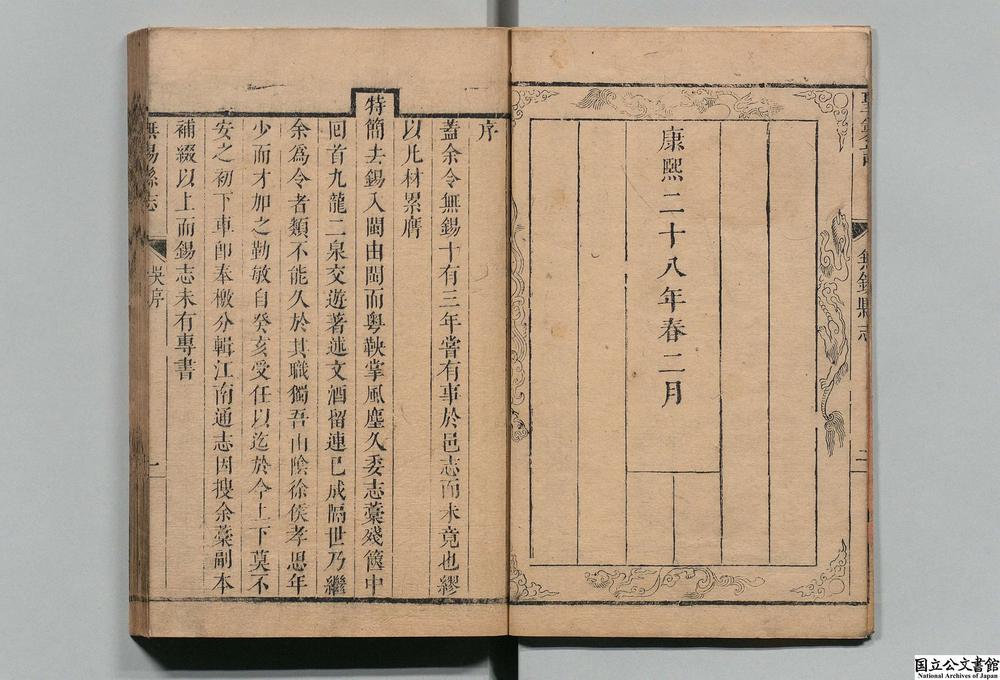 無錫縣志
二
康熙二十八年春二月
序
蓋余令無錫十有三年嘗有事於邑志而未竟也繆
以凡材累膺
特簡去錫入閩由閩而粵鞅掌風塵久委志藁殘篋中
回首九龍二泉交遊著述文酒留連已成隔世乃繼
余爲令者類不能久於其職獨吾山陰徐侯孝思年
少而才加之勤敏自癸亥受任以迄於今上下莫不
安之初下車卽奉檄分輯江南通志因搜余藁副本
補綴以上而錫志未有專書
無錫縣志
吳序
一
国立公文書館
National Archives of Japan